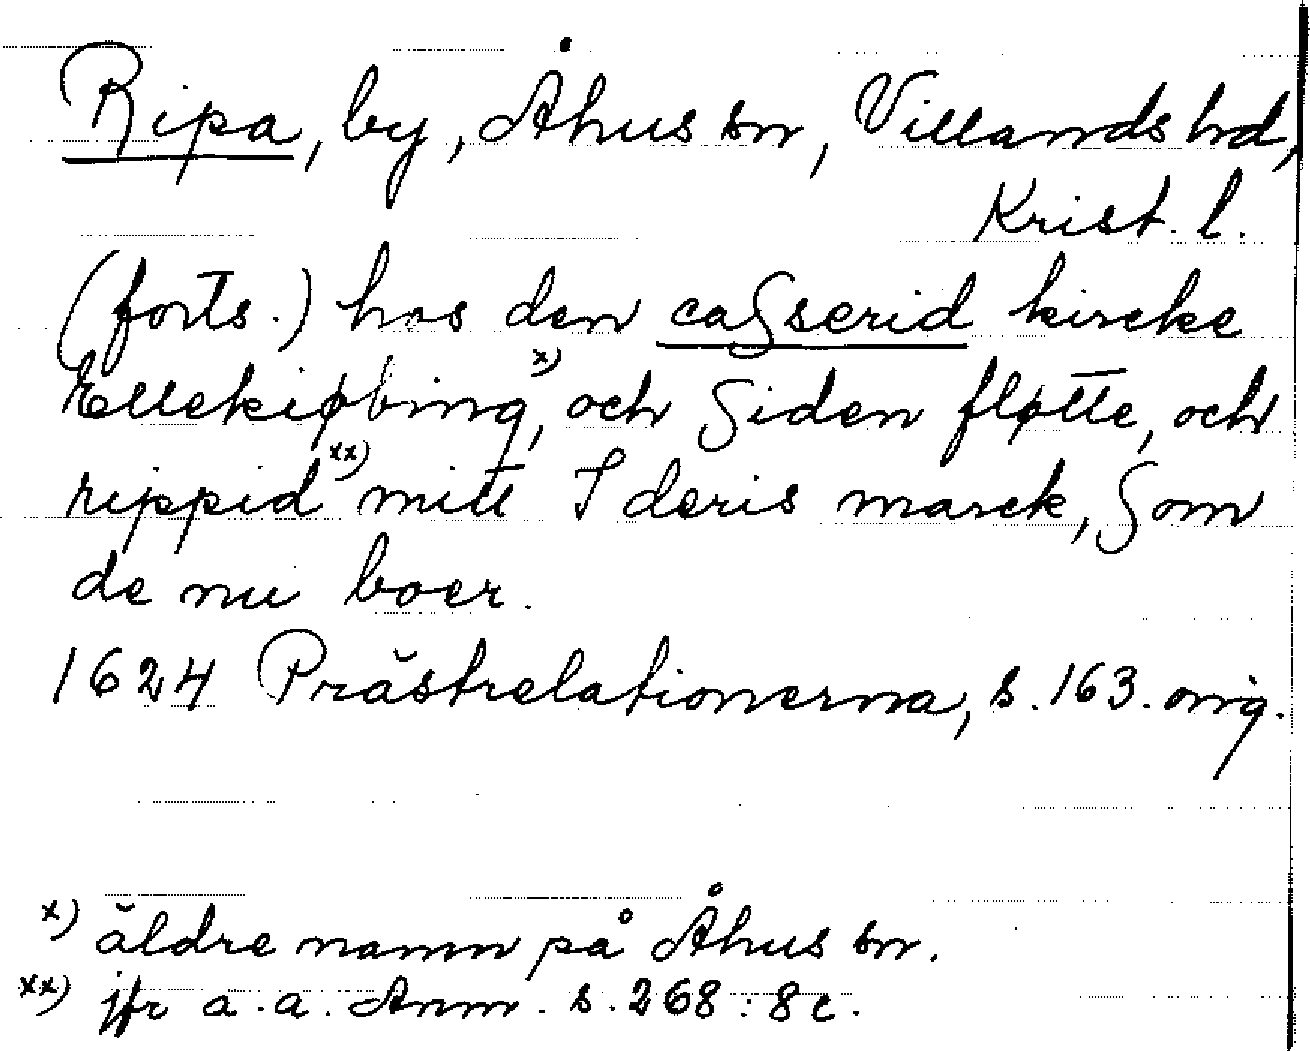 Ripa, by, Åhus sn, Villands hd,
Krist. l.
(forts.) hos den caſserid kircke
Ellekiøbing,x) och ſiden fløtte, och
rippidxx) mitt I deris marck, ſom
de nu boer.
1624 Prästrelationerna, s. 163. orig.
x) äldre namn på Åhus sn.
xx) jfr a. a. Anm. s. 268: 8 c.